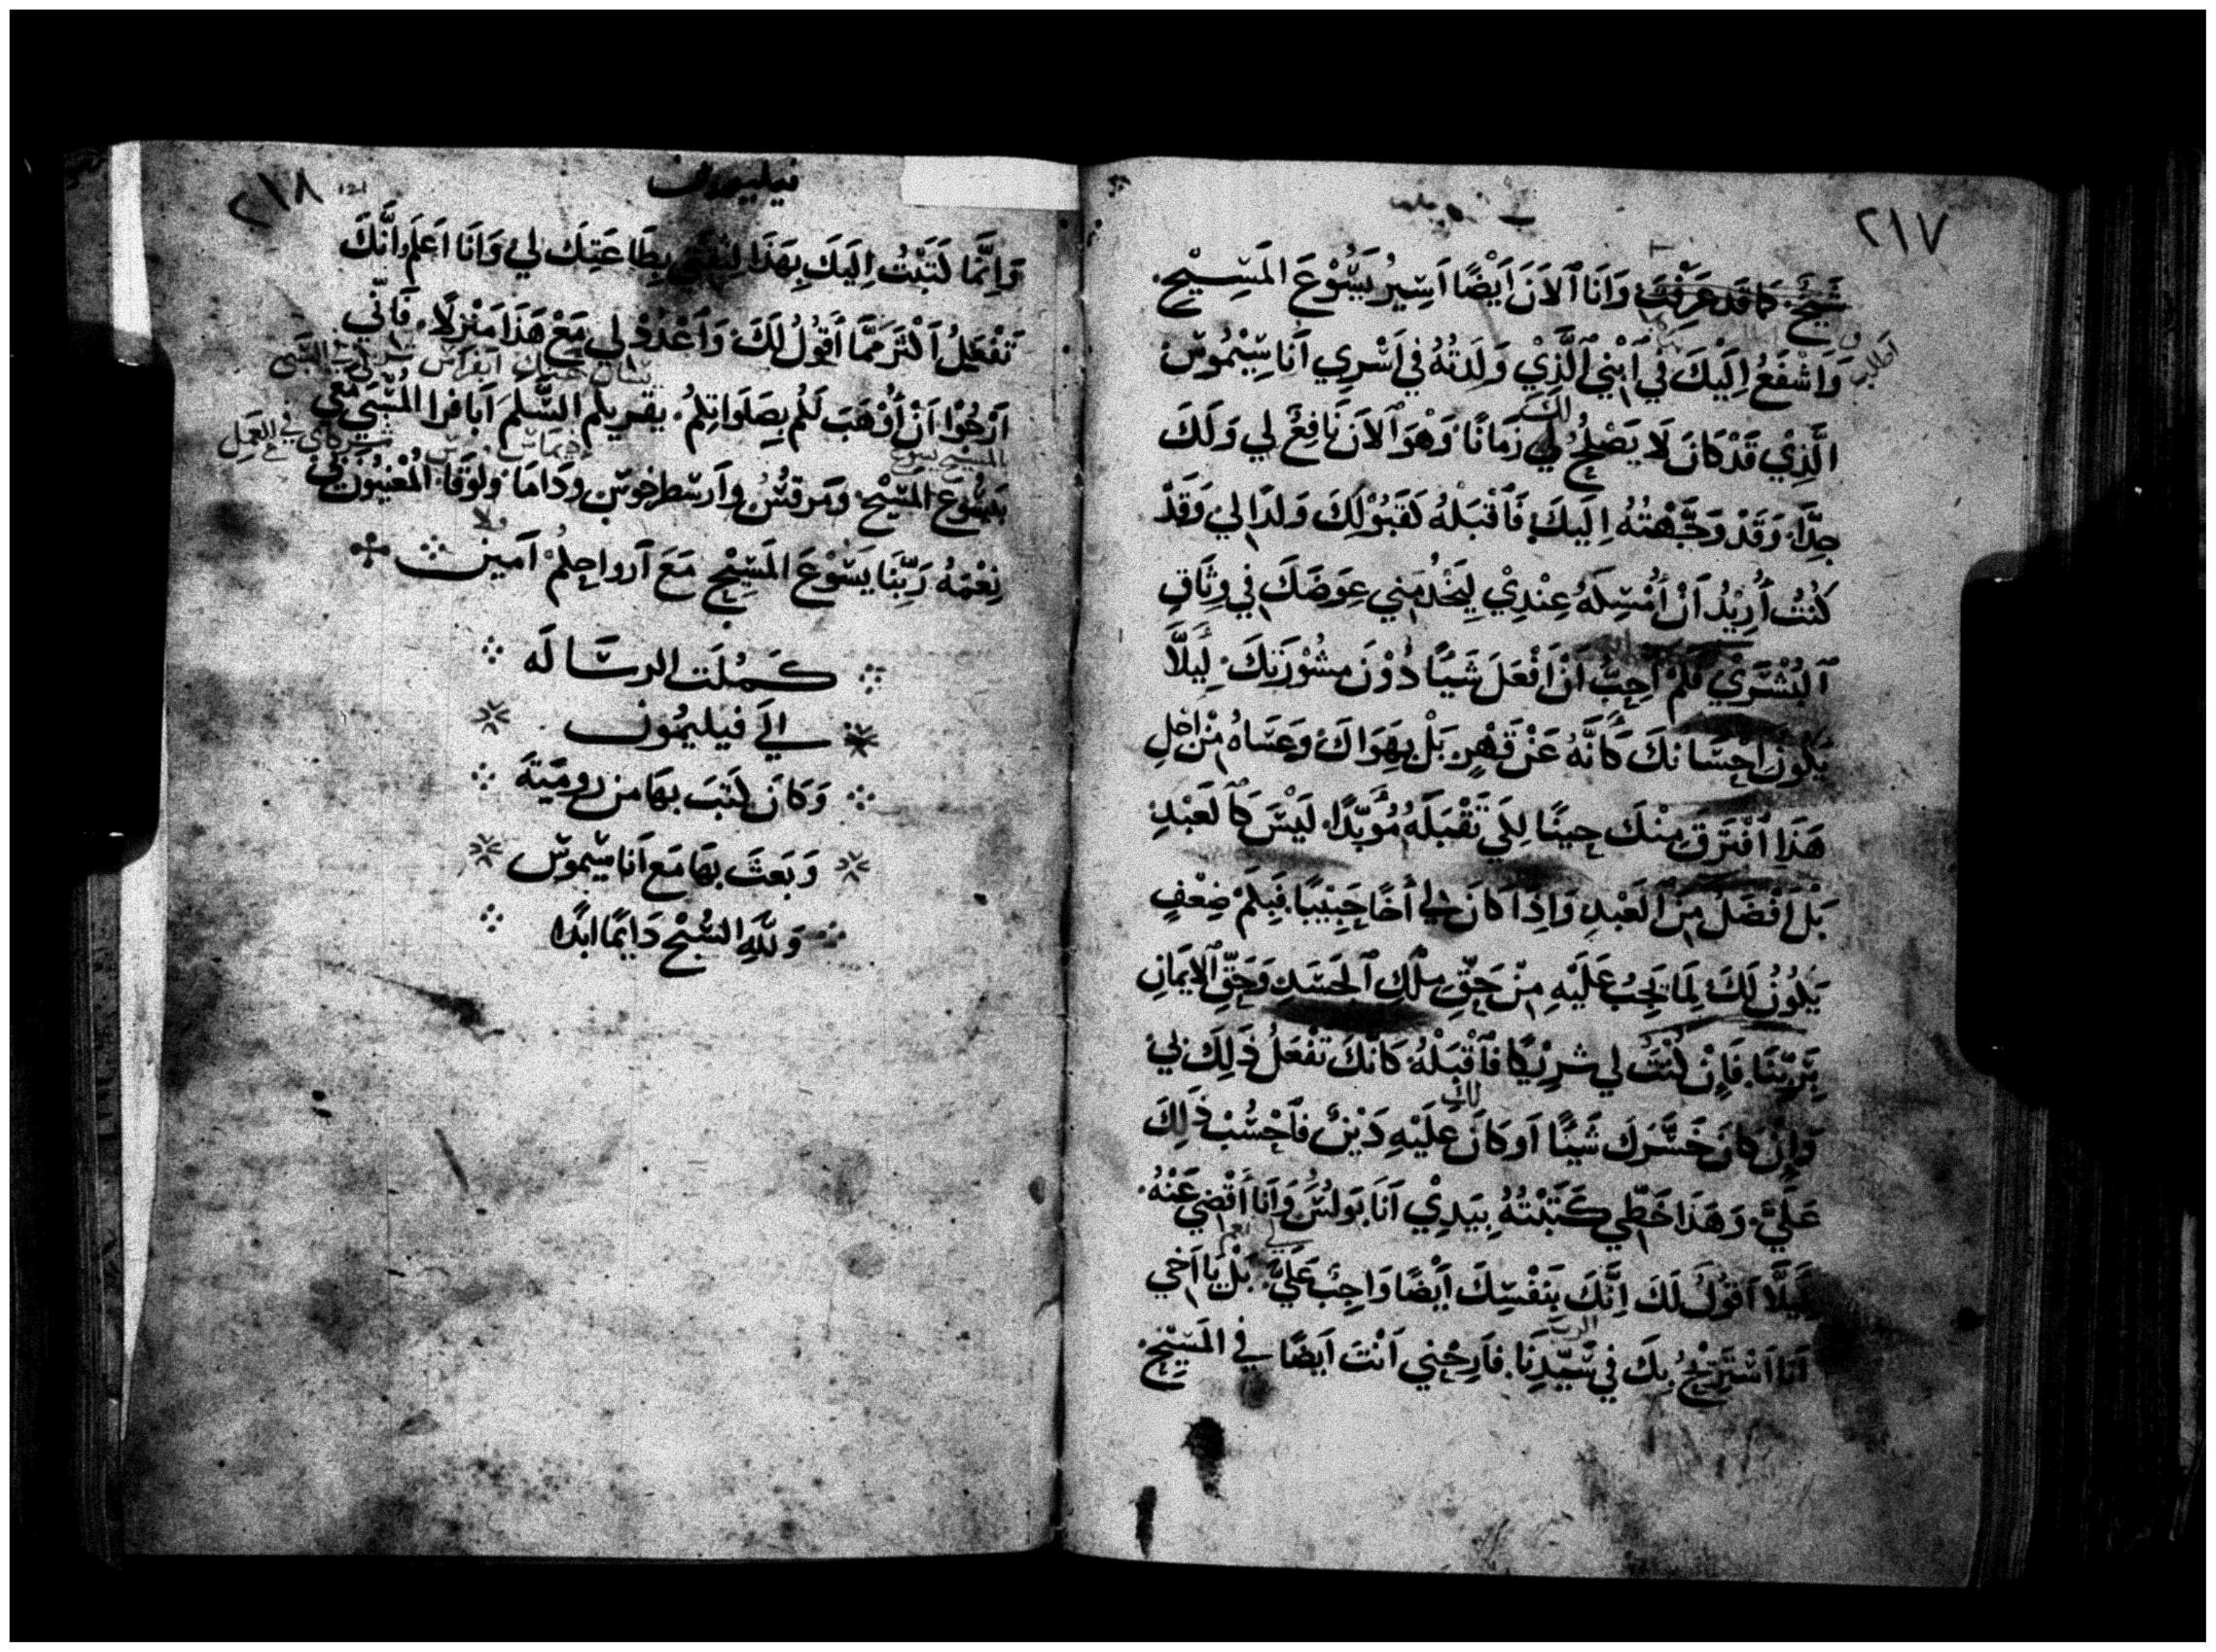 ٢١٧
شَيخٌ. كَما قَد عَرَفتَ وَأَنَا ٱلآنَ أَيْضًا اَسِيرُ يَسُوْعَ المَسِيْحِ.
وَاَشْفَعُ اِلَيْكَ فِي ٱبْنِي ٱلَّذِيْ وَلَدتُهُ فِي اَسْرِي اَنَاسِيْمُوسَ
اطلب
لك
الَّذِيْ قَدْ كَانَ لَا يَصْلُحُ لِي زَمَانًا وَهْوَ ٱلاَنَ نَافِعٌ لِي وَلَكَ
جِدًّا. وَقَدْ وَجَّهْتُهُ اِلَيكَ فَٱقْبَلْهُ كَقَبُوْلِكَ وَلَدًا لِي وَقَدْ
كُنْتُ أُرِيْدُ اَنْ أُمْسِكَهُ عِنْدِيْ لِيَخْدُمَنِي عِوَضَكَ فِي وِثَاقِ
ٱلبُشْرَيْ فَلَمْ اُحِبَّ اَنْ اَفْعَلَ شَيًا دُوْنَ مَشُوْرَتِكَ. لِيَلَّا
يَكُونَ اِحْسَانكَ كَأَنَّهُ عَنْ قَهْرٍ بَلْ بِهَوَاكَ وَعَسَاهُ مِنْ اَجْلِ
هَذَا اُفْتَرَقَ مِنْكَ حِينًا لِكَي تَقْبَلَهُ مُوَبَّدًا. لَيْسَ كَٱلعَبْدِ
بَلْ اَفْضَلَ مِنَ العَبْدِ وَاِذَا كَانَ لِي أَخًا حَبِيْبًا فَبِكَمْ ضِعْفٍ
يَكُونُ لَكَ لِمَا يَجِبُ عَلَيْهِ مِنْ حَقِّ مِلْكِ ٱلجَسَدِ وَحَقِّ ٱلاِيمَانِ
بِرَبِّنَا. فَاِنْ كُنْتَ لِي شَرِيْكًا فَٱقْبَلْهُ كَانَّكَ تَفْعَلُ ذَلِكَ لِي
لك
وَاِنْ كَانَ خَسَّرَكَ شَيئًا اَو كَانَ عَلَيْهِ دَيْنٌ فَٱحْسُبْ ذَلِكَ
عَلَيَّ. وَهَذَا خَطِّي كَتَبْتُهُ بِيَدِيْ اَنَا بَولُسُ وَاَنَا اَقْضِي عَنْهُ.
نعم
لِيَلَّا اَقُولَ لَكَ اِنَّكَ بِنَفْسِكَ اَيْضًا وَاجِبٌ عَلَيَّ بَلْ يَا اَخِي
الرب
اَنَا اَسْتَرِيْحُ بِكَ فِي سَيِّدِنَا. فَاَرِحْنِي اَنْتَ اَيضًا فِي المَسِيْحِ.
٢١٨
121
فيليمون
وَاِنَّمَا كَتَبْتُ اِلَيكَ بِهَذَا لِثِقَتِي بِطَاعَتِكَ لِي وَاَنَا اَعلَم اَنَّكَ
تَفْعَلُ اَكْثَرَ مِمَّا أَقُولُ لَكَ. وَاَعْدُدْ لِي مَعْ هَذَا مَنْزِلًا. فَاَنِّي
اَرْجُوْا اَنْ أُوْهَبَ لَكُم بِصَلَوَاتِكُمْ. يقريكم السَّلمَ اَبَافرا المُسْبَي مَعِي
شركاي في العمل
بالمسيح يسوع
بِيَسُوْعَ المَسِيْحِ. وَمَرقُسُ وَارَسْطَرْخوسَ ودَامَا وَلُوقَا. المُعْيِنُونَ لِي
نِعْمَهُ رَبِّنَا يَسُوْعَ المَسِيْحِ مَعَ اَرواحِكُمْ اَمِين
كَمُلَت الرسَالَه
الَي فيليمُون
وَكَانَ كَتَبَ بِهَا مِن رومِيَةَ
وَبَعَثَ بِهَا مَع اَنَاسِيمُوسَ
وَلِلَّهِ السُّبْحُ دَايمًا ابَدًا